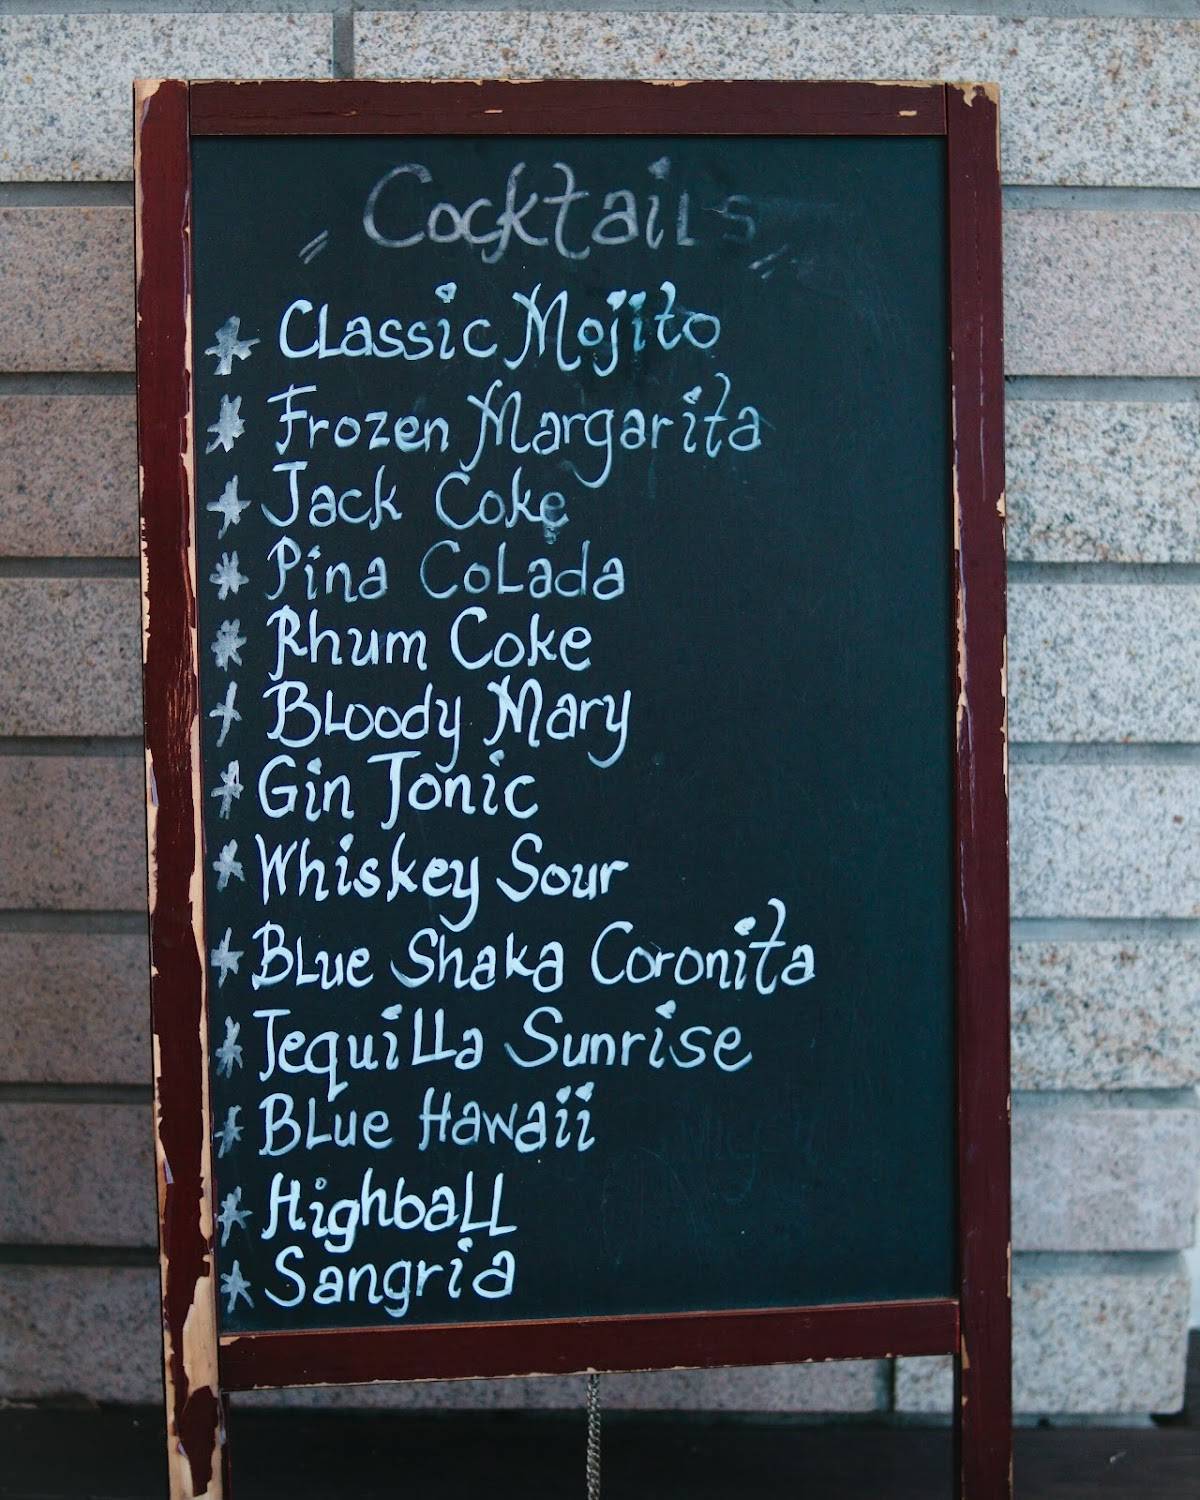 " Cocktails "
* Classic Mojito
* Frozen Margarita
* Jack Coke
* Pina Colada
* Rhum Coke
* Bloody Mary
* Gin Tonic
* Whiskey Sour
* Blue Shaka Coronita
* Tequilla Sunrise
* Blue Hawaii
* Highball
* Sangria